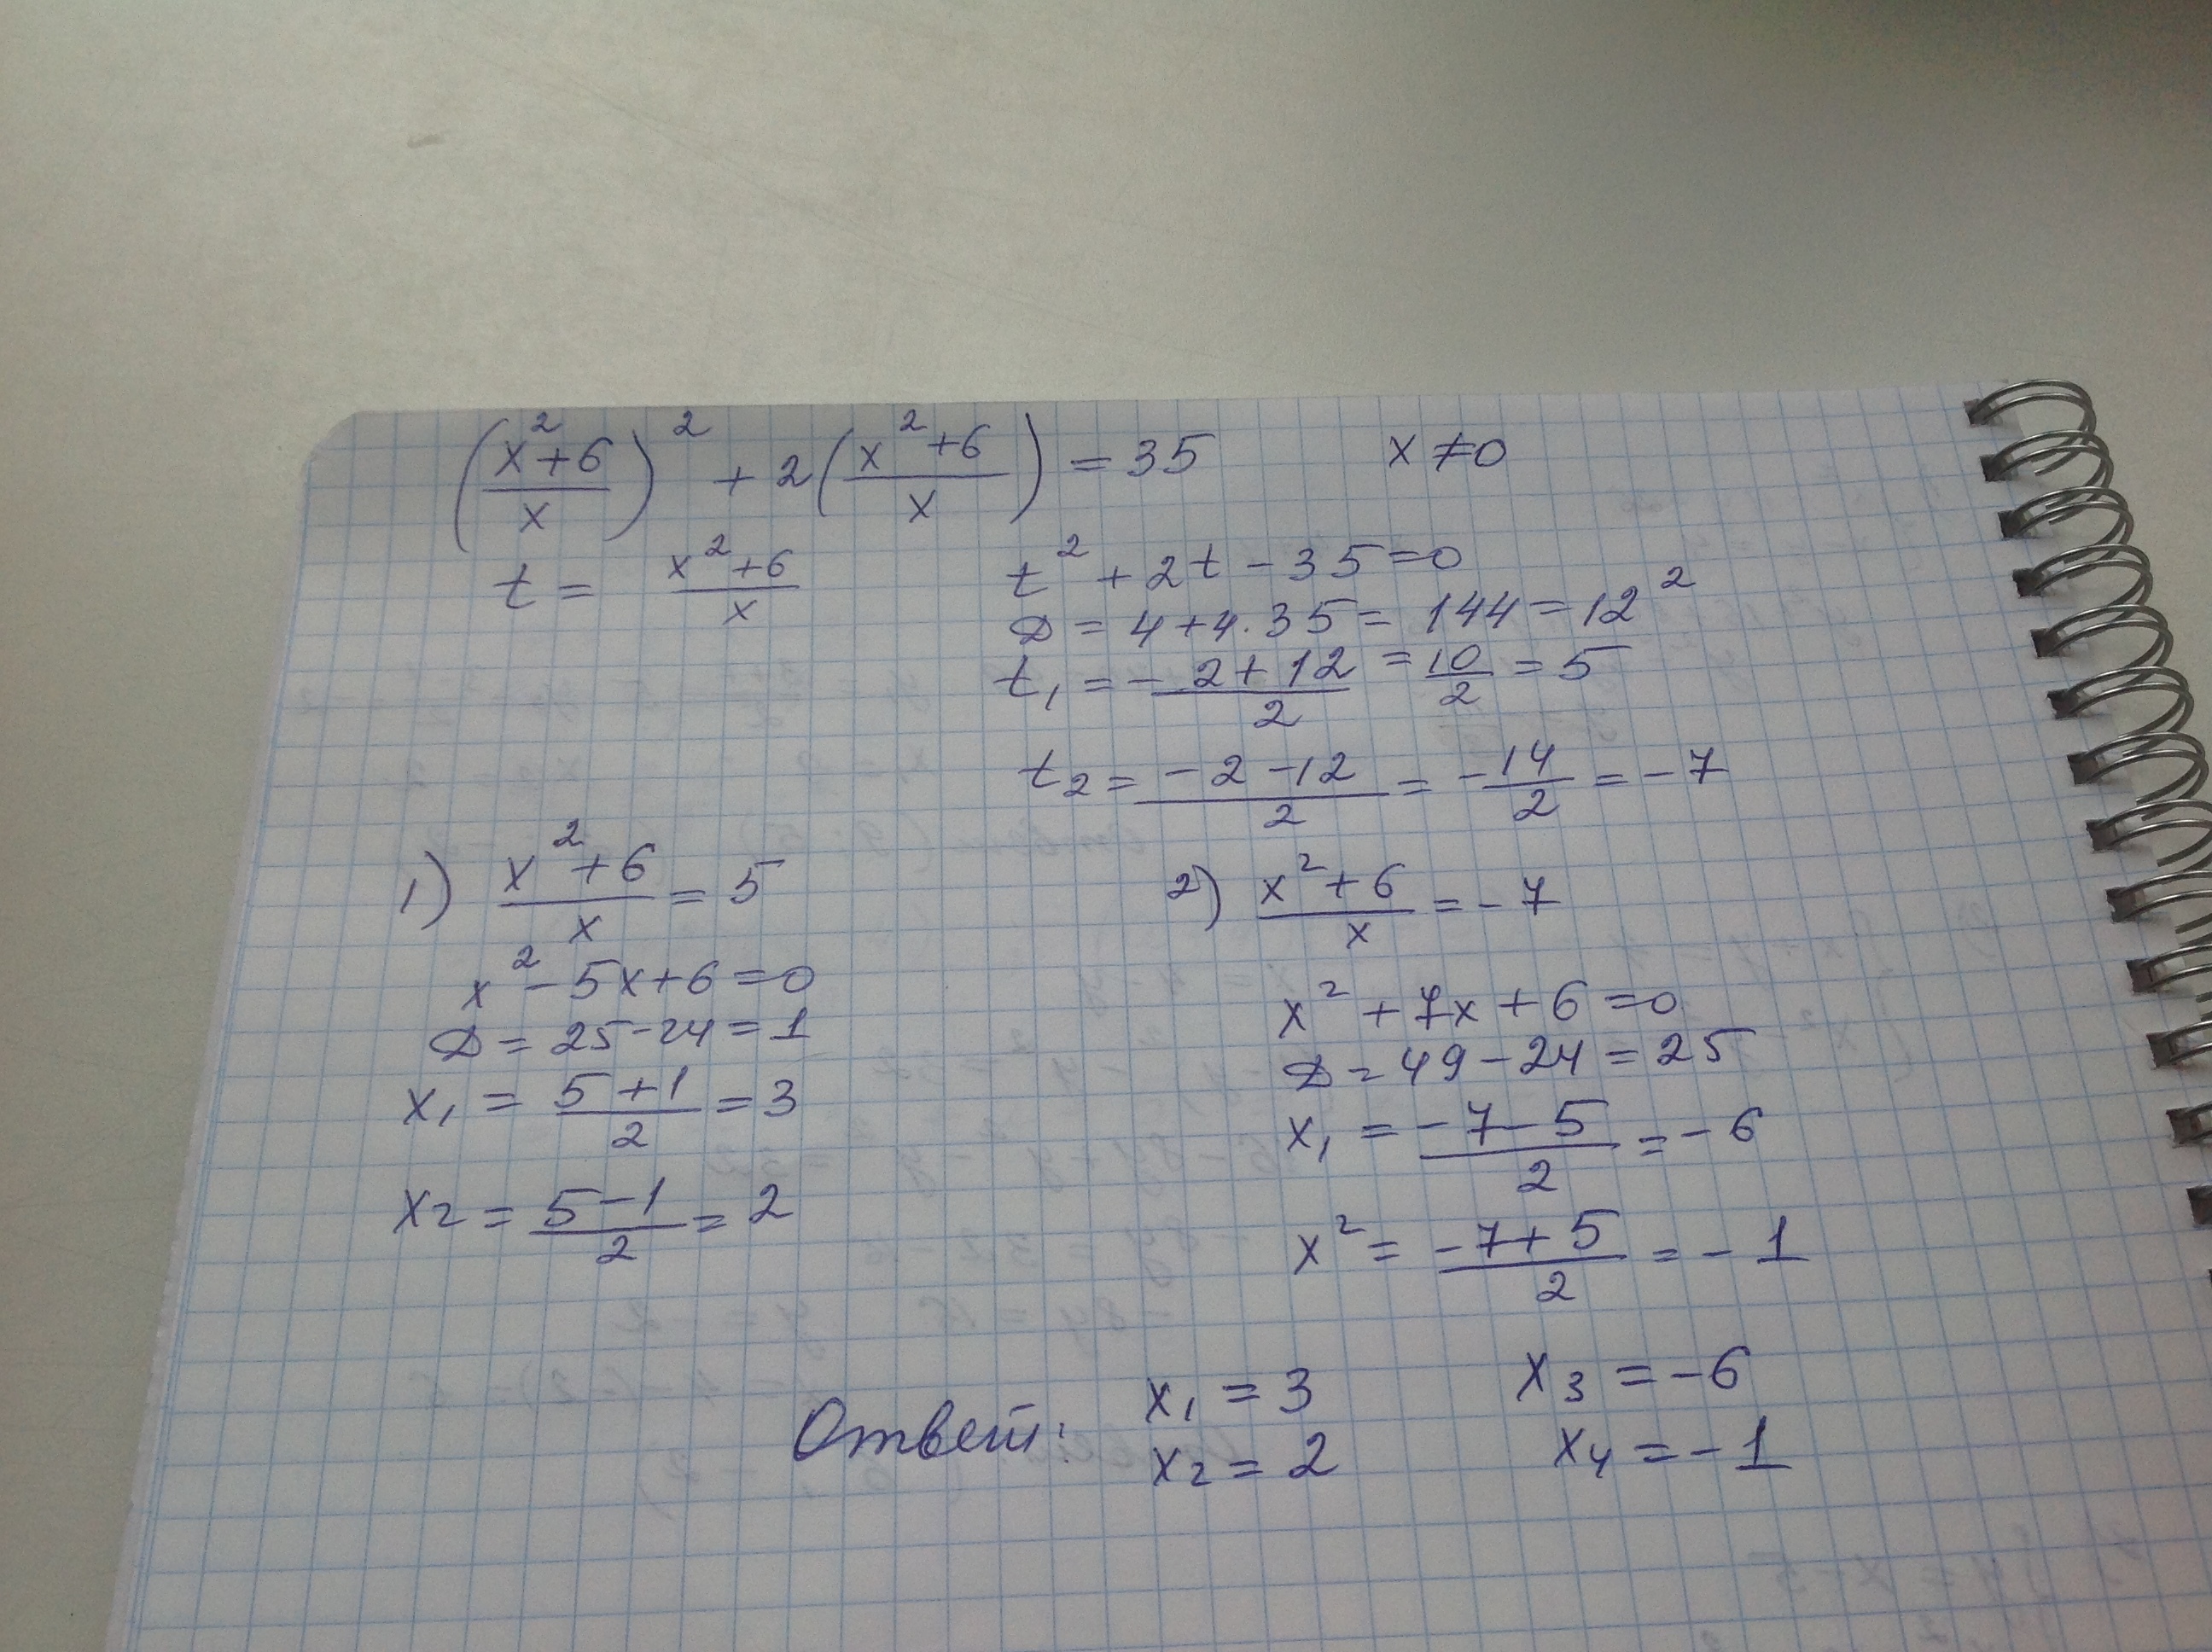 (x²+6/x)² + 2(x²+6/x) = 35 x ≠ 0
t = x²+6/x
t² + 2t - 35 = 0
D = 4 + 4·35 = 144 = 12²
t₁ = -2+12/2 = 10/2 = 5
t₂ = -2-12/2 = -14/2 = -7
1) x²+6/x = 5
x² - 5x + 6 = 0
D = 25 - 24 = 1
x₁ = 5+1/2 = 3
x₂ = 5-1/2 = 2
2) x²+6/x = -7
x² + 7x + 6 = 0
D = 49 - 24 = 25
x₁ = -7-5/2 = -6
x² = -7+5/2 = -1
Ответ: x₁ = 3 x₃ = -6
x₂ = 2 x₄ = -1